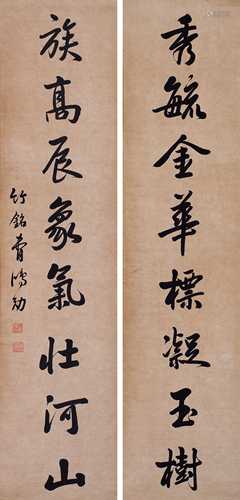 秀毓金華標凝玉樹
族高辰象氣壯河山
竹銘曹鴻勛